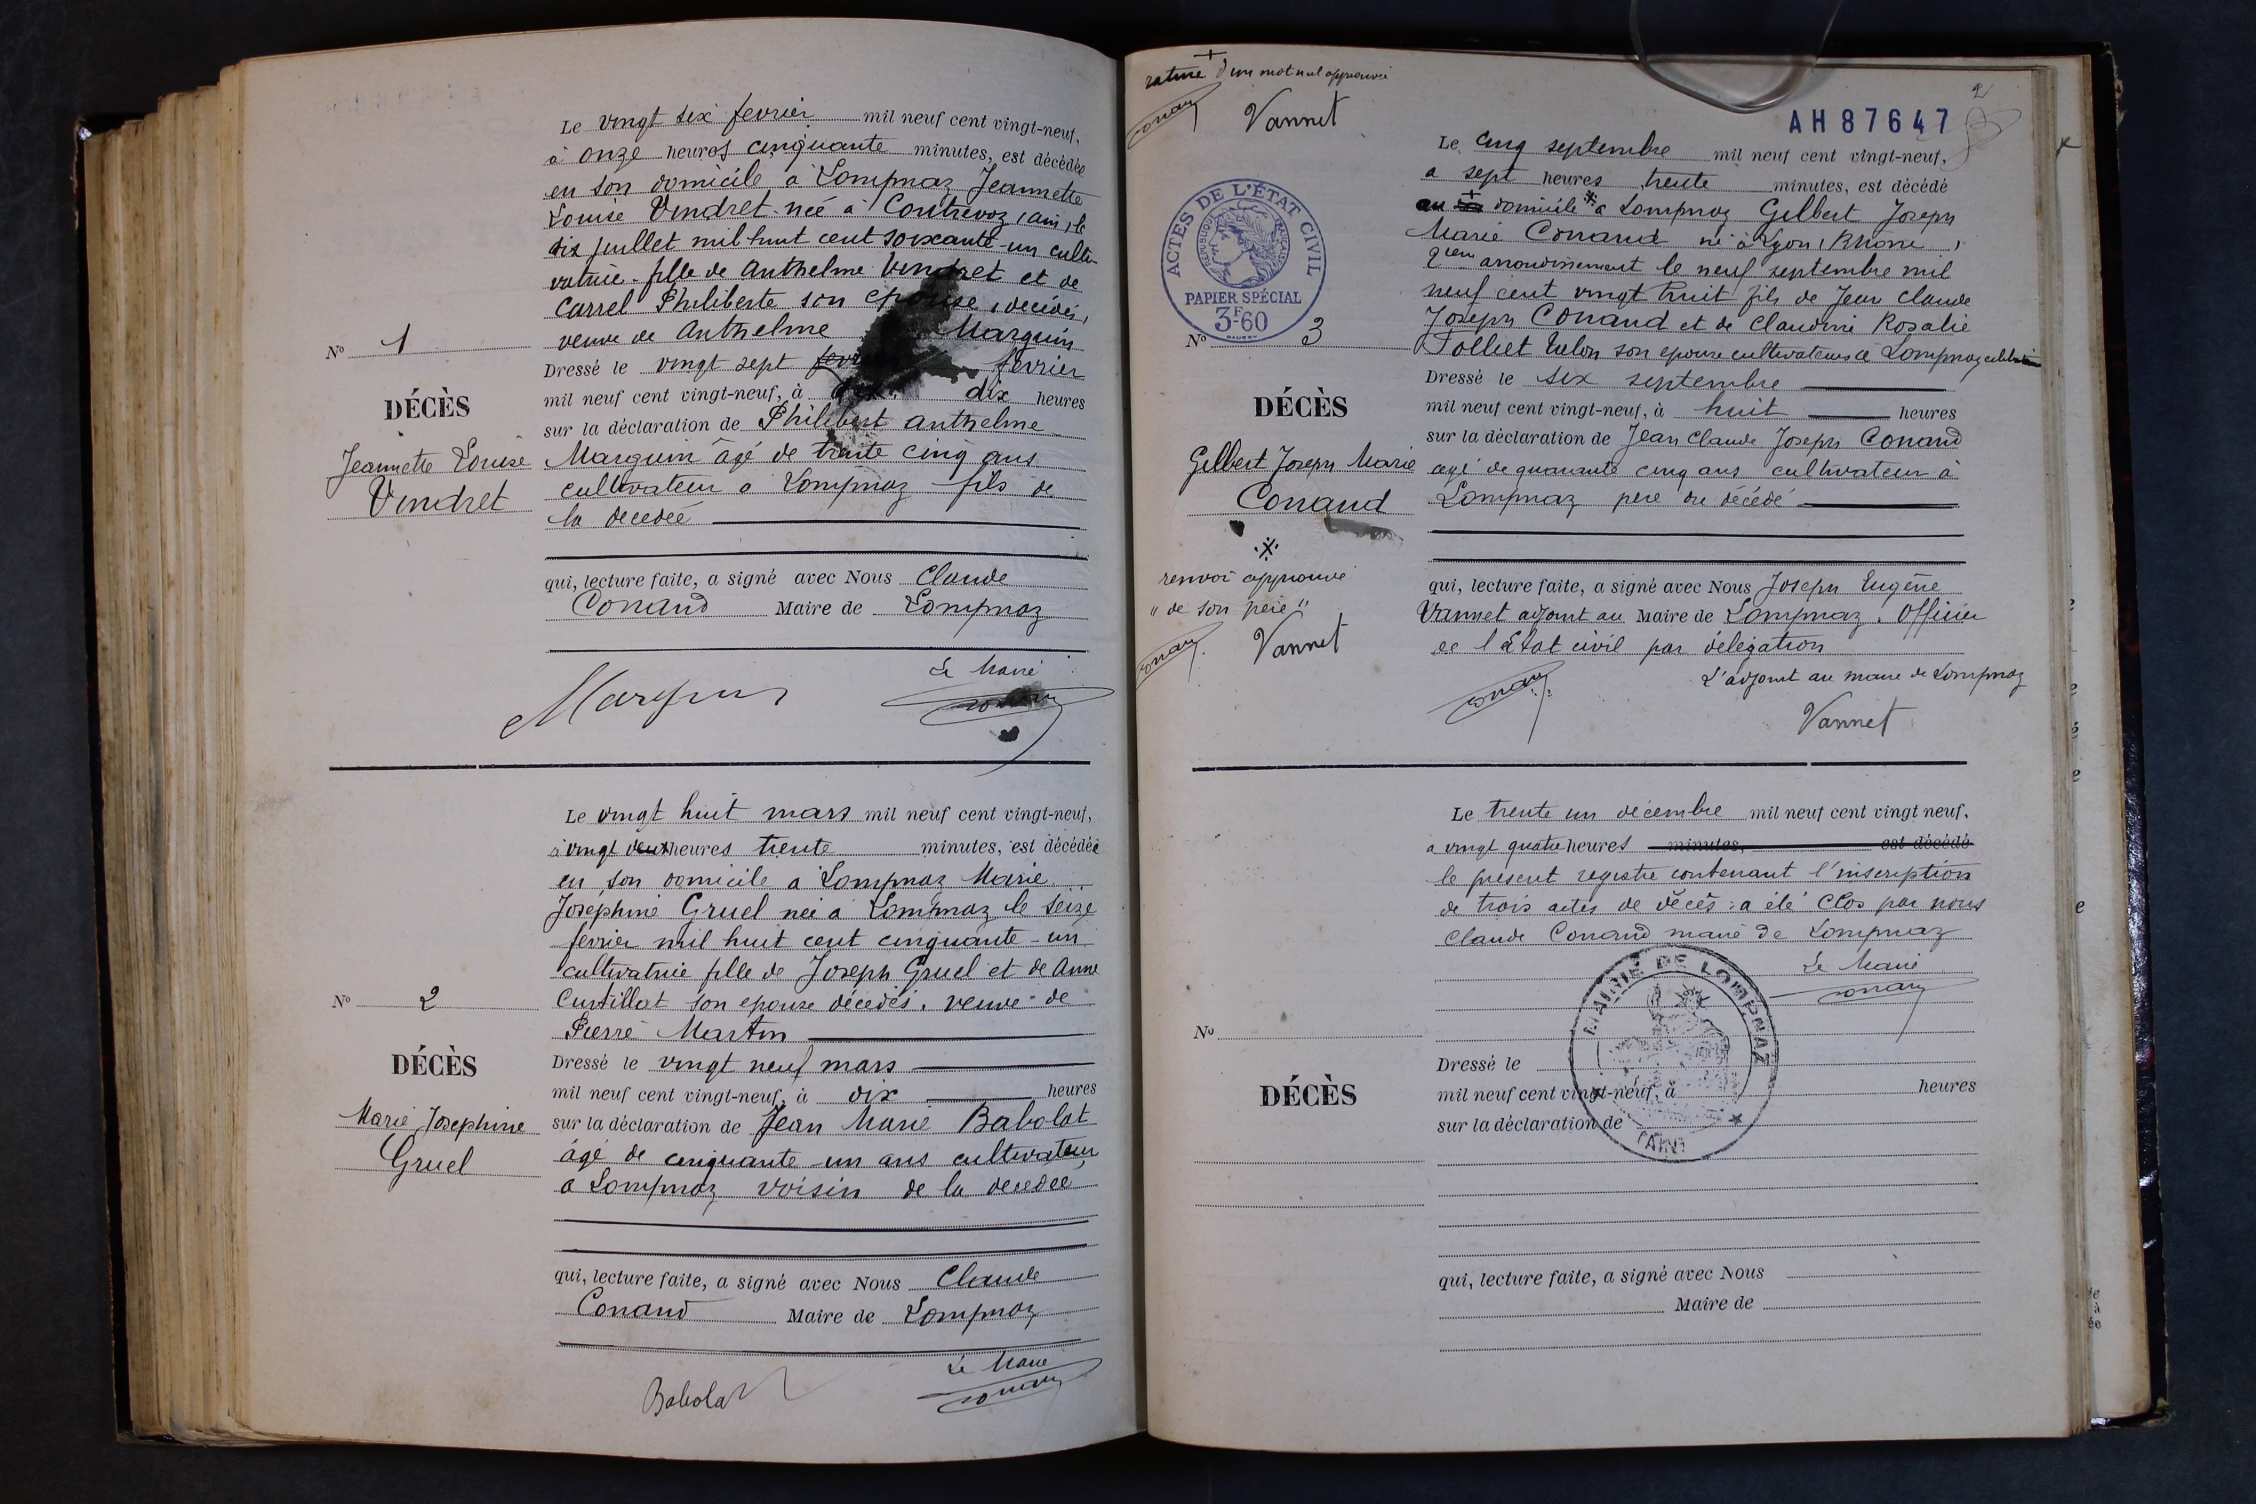 Le vingt six fevrier mil neuf cent vingt-neuf,
à onze heures cinquante minutes, est décédée
en son domicile à Lompnaz Jeannette
Louise Vendret née à Contrevoz (ain) le
dix juillet mil huit cent soixante-un culti-
vatrice fille de Anthelme Vendret et de
Carrel Philiberte son épouse, décédés,
veuve de Anthelme Marguin
N° 1
DÉCÈS
Jeannette Louise
Vendret
Dressé le vingt sept février
mil neuf cent vingt-neuf, à dix heures
sur la déclaration de Philibert Anthelme
Marguin âgé de trente cinq ans
cultivateur a Lompnaz fils de
la decedeé
qui, lecture faite, a signé avec Nous Claude
Conand Maire de Lompnaz
Le Maire
Marguin Conand
Le vingt huit mars mil neuf cent vingt-neuf,
à vingt deux heures trente minutes, est décédée
en son domicile a Lompnaz Marie
Joséphine Gruel née a Lompnaz le seize
fevrier mil huit cent cinquante-un
cultivatrice fille de Joseph Gruel et de Anne
Curtillat son epouse décédés. veuve de
Pierre Martin
N° 2
DÉCÈS
Marie Josephine
Gruel
Dressé le vingt neuf mars
mil neuf cent vingt-neuf, à dix heures
sur la déclaration de Jean Marie Babolat
âgé de cinquante-un ans cultivateur
a Lompnaz voisin de la decedée
qui, lecture faite, a signé avec Nous Claude
Conand Maire de Lompnaz
Le Maire
Babolat Conand
+
rature d'un mot nul approuvée
Conand Vannet
2
AH87647
ACTES DE L'ÉTAT CIVIL
RÉPUBLIQUE FRANÇAISE
PAPIER SPÉCIAL
3F-60
Le cinq septembre mil neuf cent vingt-neuf,
a sept heures trente minutes, est décédé
au domicile ※ a Lompnaz Gilbert Joseph
Marie Conand né à Lyon (Rhône)
arrondissement le neuf septembre mil
neuf cent vingt huit fils de Jean Claude
Joseph Conand et de Claudine Rosalie
Tulon son epouse cultivateurs a Lompnaz
N° 3
DÉCÈS
Gilbert Joseph Marie
Conand
※
renvoi approuvé
"de son père"
Conand Vannet
Dressé le six septembre
mil neuf cent vingt-neuf, à huit heures
sur la déclaration de Jean Claude Joseph Conand
agé de quarante cinq ans cultivateur à
Lompnaz pere du décédé
qui, lecture faite, a signé avec Nous Joseph Eugène
Vannet adjoint au Maire de Lompnaz. Officier
de l'état civil par délégation
L'adjoint au maire de Lompnaz
Conand Vannet
Le trente un decembre mil neuf cent vingt neuf.
a vingt quatre heures minutes, est décédé
le présent registre contenant l'inscription
de trois actes de décès : a été clos par nous
Claude Conand maire de Lompnaz
Le Maire
Conand
MAIRIE DE LOMPNAZ
(AIN)
N°
DÉCÈS
Dressé le
mil neuf cent vingt-neuf, à heures
sur la déclaration de
qui, lecture faite, a signé avec Nous
Maire de